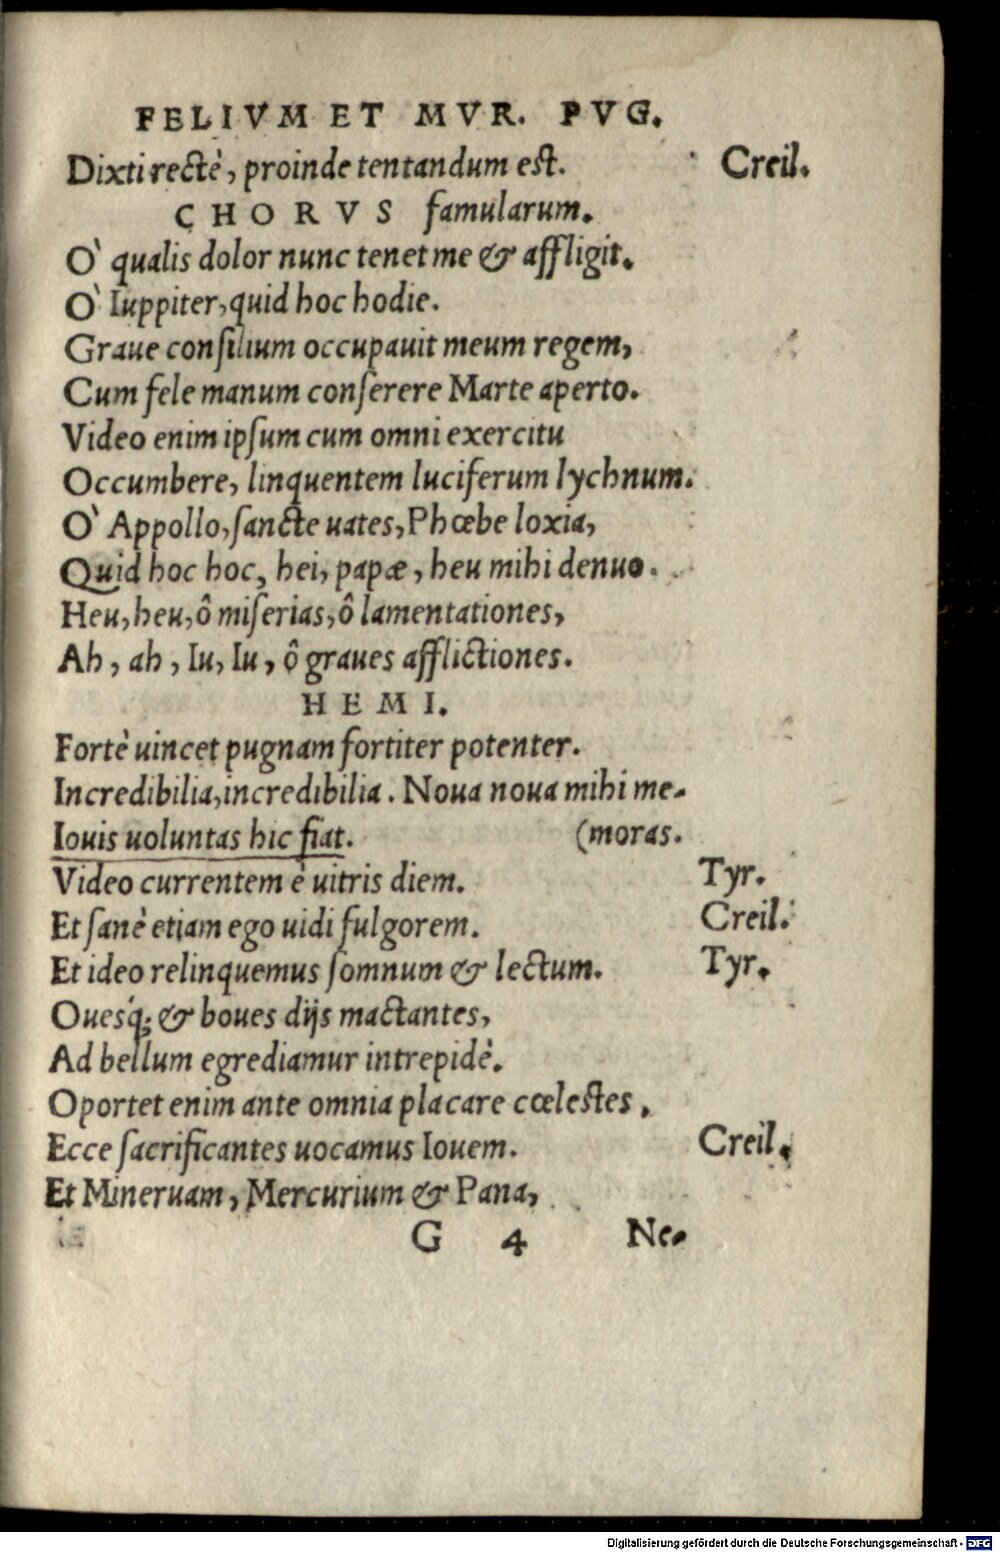 FELIVM ET MVR. PVG.
Dixti rectè, proinde tentandum est. Creil.
CHORVS famularum.
O` qualis dolor nunc tenet me & affligit.
O` Iuppiter, quid hoc hodie.
Graue consilium occupauit meum regem,
Cum fele manum conserere Marte aperto.
Video enim ipsum cum omni exercitu
Occumbere, linquentem luciferum lychnum.
O` Appollo, sancte uates, Phœbe loxia,
Quid hoc hoc, hei, papæ, heu mihi denuo.
Heu, heu, ô miserias, ô lamentationes,
Ah, ah, Iu, Iu, ô graues afflictiones.
HEMI.
Fortè uincet pugnam fortiter potenter.
Incredibilia, incredibilia. Noua noua mihi me-
Iouis uoluntas hic fiat. (moras.
Video currentem è uitris diem. Tyr.
Et sanè etiam ego uidi fulgorem. Creil.
Et ideo relinquemus somnum & lectum. Tyr.
Ouesq́; & boues dijs mactantes,
Ad bellum egrediamur intrepidè.
Oportet enim ante omnia placare cœlestes,
Ecce sacrificantes uocamus Iouem. Creil.
Et Mineruam, Mercurium & Pana,
G 4 Ne-
Digitalisierung gefördert durch die Deutsche Forschungsgemeinschaft - DFG